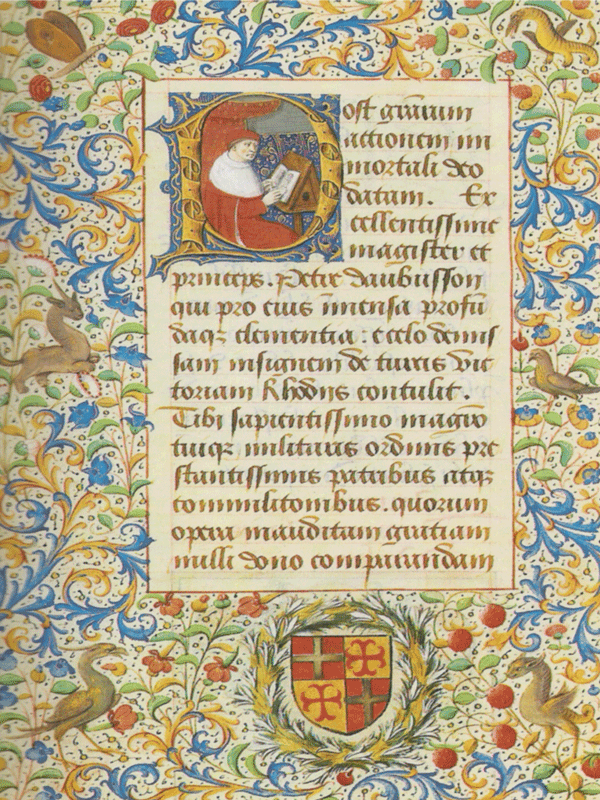 Post grārum
actionem im
mortali deo
datam. Ex
cellentissime
magister et
princeps. Petre daubusson
qui pro eius īmensa profū
daqꝫ clementia. e celo demis
sam insignem de turcis vic
toriam Rhodiis contulit.
Tibi sapientissimo magr̄o
tuiqꝫ militaris ordinis pre
stantissimis patribus atqꝫ
commilitonibus. quorum
opera inauditam gratiam
nulli dono comparandam